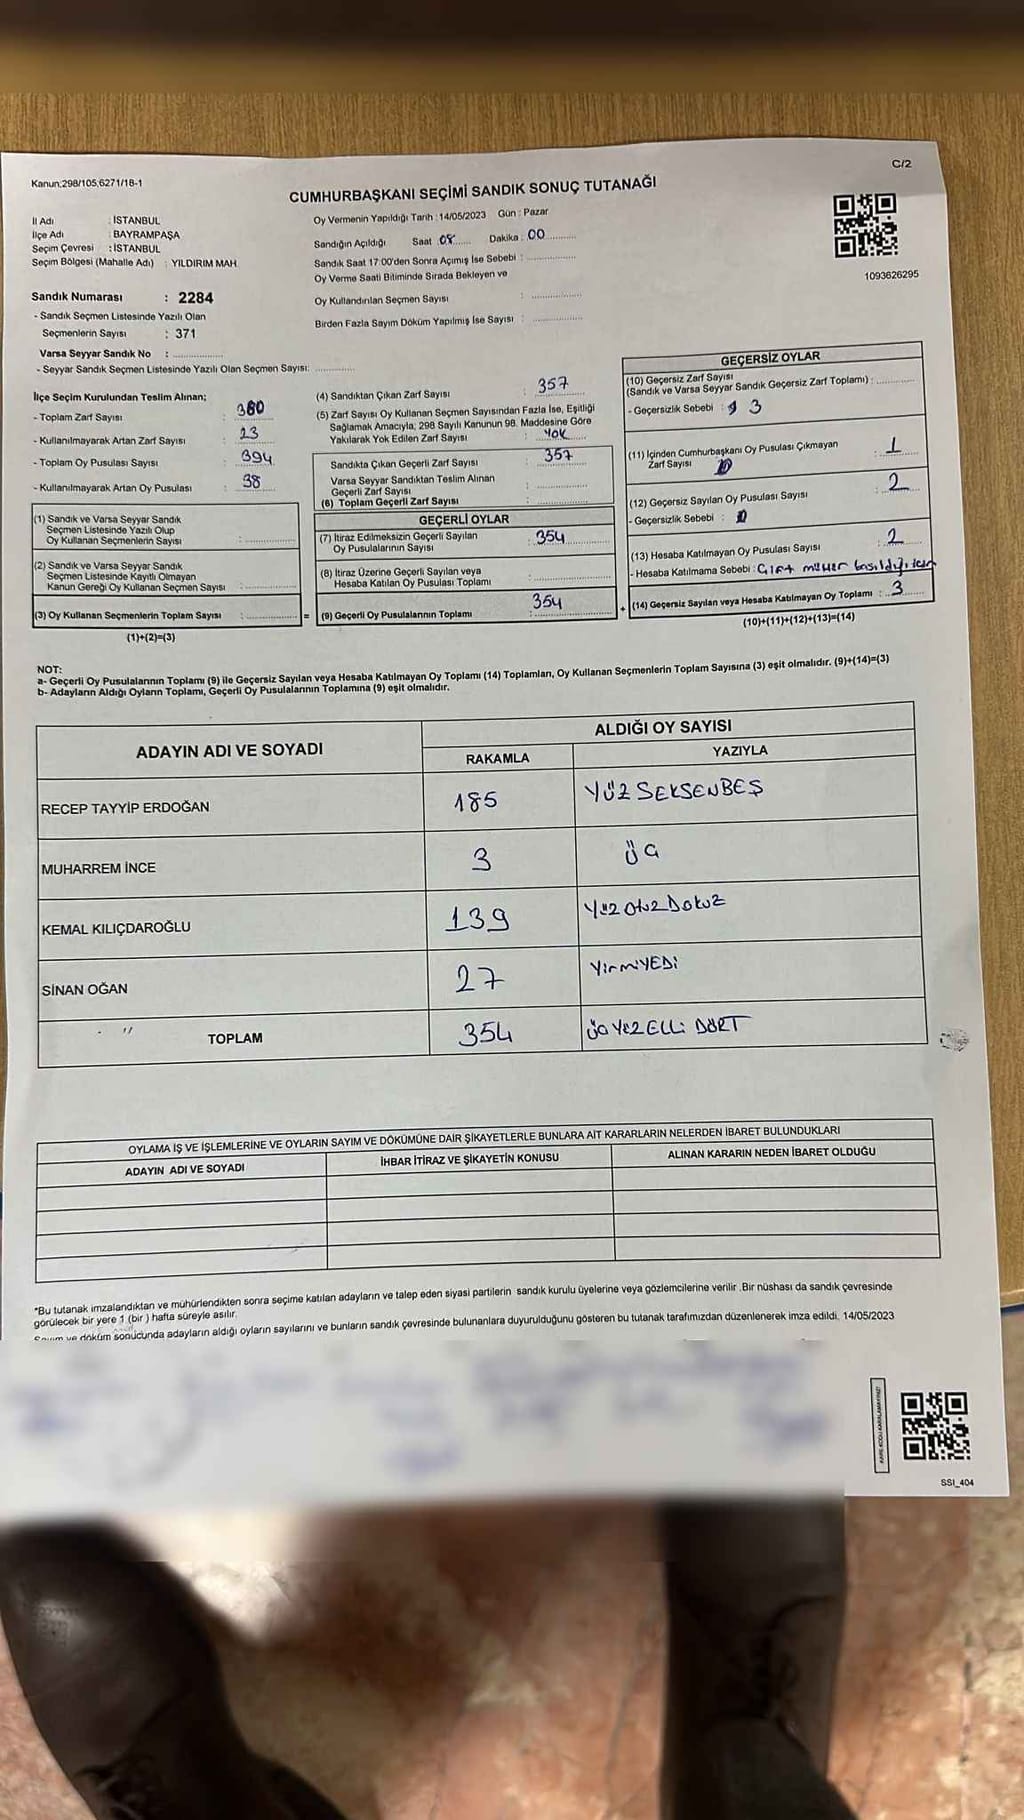 Kanun:298/105,6271/18-1
C/2
CUMHURBAŞKANI SEÇİMİ SANDIK SONUÇ TUTANAĞI
İl Adı : İSTANBUL
İlçe Adı : BAYRAMPAŞA
Seçim Çevresi : İSTANBUL
Seçim Bölgesi (Mahalle Adı) : YILDIRIM MAH.
Oy Vermenin Yapıldığı Tarih : 14/05/2023 Gün : Pazar
Sandığın Açıldığı Saat 08 Dakika : 00
Sandık Saat 17:00'den Sonra Açımış İse Sebebi :
Oy Verme Saati Bitiminde Sırada Bekleyen ve
Oy Kullandırılan Seçmen Sayısı :
Birden Fazla Sayım Döküm Yapılmış İse Sayısı :
1093626295
Sandık Numarası : 2284
- Sandık Seçmen Listesinde Yazılı Olan
Seçmenlerin Sayısı : 371
Varsa Seyyar Sandık No :
- Seyyar Sandık Seçmen Listesinde Yazılı Olan Seçmen Sayısı:
İlçe Seçim Kurulundan Teslim Alınan;
- Toplam Zarf Sayısı : 380
- Kullanılmayarak Artan Zarf Sayısı : 23
- Toplam Oy Pusulası Sayısı : 394
- Kullanılmayarak Artan Oy Pusulası : 38
(1) Sandık ve Varsa Seyyar Sandık
Seçmen Listesinde Yazılı Olup
Oy Kullanan Seçmenlerin Sayısı :
(2) Sandık ve Varsa Seyyar Sandık
Seçmen Listesinde Kayıtlı Olmayan
Kanun Gereği Oy Kullanan Seçmen Sayısı :
(3) Oy Kullanan Seçmenlerin Toplam Sayısı : =
(1)+(2)=(3)
(4) Sandıktan Çıkan Zarf Sayısı : 357
(5) Zarf Sayısı Oy Kullanan Seçmen Sayısından Fazla İse, Eşitliği
Sağlamak Amacıyla; 298 Sayılı Kanunun 98. Maddesine Göre
Yakılarak Yok Edilen Zarf Sayısı : YOK
Sandıkta Çıkan Geçerli Zarf Sayısı : 357
Varsa Seyyar Sandıktan Teslim Alınan
Geçerli Zarf Sayısı :
(6) Toplam Geçerli Zarf Sayısı :
GEÇERLİ OYLAR
(7) İtiraz Edilmeksizin Geçerli Sayılan
Oy Pusulalarının Sayısı : 354
(8) İtiraz Üzerine Geçerli Sayılan veya
Hesaba Katılan Oy Pusulası Toplamı :
(9) Geçerli Oy Pusulalarının Toplamı : 354 +
GEÇERSİZ OYLAR
(10) Geçersiz Zarf Sayısı
(Sandık ve Varsa Seyyar Sandık Geçersiz Zarf Toplamı) :
- Geçersizlik Sebebi : 3
(11) İçinden Cumhurbaşkanı Oy Pusulası Çıkmayan
Zarf Sayısı : 1
(12) Geçersiz Sayılan Oy Pusulası Sayısı : 2
- Geçersizlik Sebebi :
(13) Hesaba Katılmayan Oy Pusulası Sayısı : 2
- Hesaba Katılmama Sebebi : Çift mühür basıldığı için
(14) Geçersiz Sayılan veya Hesaba Katılmayan Oy Toplamı : 3
(10)+(11)+(12)+(13)=(14)
NOT:
a- Geçerli Oy Pusulalarının Toplamı (9) ile Geçersiz Sayılan veya Hesaba Katılmayan Oy Toplamı (14) Toplamları, Oy Kullanan Seçmenlerin Toplam Sayısına (3) eşit olmalıdır. (9)+(14)=(3)
b- Adayların Aldığı Oyların Toplamı, Geçerli Oy Pusulalarının Toplamına (9) eşit olmalıdır.
ADAYIN ADI VE SOYADI ALDIĞI OY SAYISI
RAKAMLA YAZIYLA
RECEP TAYYİP ERDOĞAN 185 YÜZ SEKSENBEŞ
MUHARREM İNCE 3 ÜÇ
KEMAL KILIÇDAROĞLU 139 YÜZ OTUZ DOKUZ
SİNAN OĞAN 27 YİRMİYEDİ
TOPLAM 354 ÜÇ YÜZ ELLİ DÖRT
OYLAMA İŞ VE İŞLEMLERİNE VE OYLARIN SAYIM VE DÖKÜMÜNE DAİR ŞİKAYETLERLE BUNLARA AİT KARARLARIN NELERDEN İBARET BULUNDUKLARI
ADAYIN ADI VE SOYADI İHBAR İTİRAZ VE ŞİKAYETİN KONUSU ALINAN KARARIN NEDEN İBARET OLDUĞU
*Bu tutanak imzalandıktan ve mühürlendikten sonra seçime katılan adayların ve talep eden siyasi partilerin sandık kurulu üyelerine veya gözlemcilerine verilir .Bir nüshası da sandık çevresinde
görülecek bir yere 1 (bir ) hafta süreyle asılır.
Sayım ve döküm sonucunda adayların aldığı oyların sayılarını ve bunların sandık çevresinde bulunanlara duyurulduğunu gösteren bu tutanak tarafımızdan düzenlenerek imza edildi. 14/05/2023
SSI_404